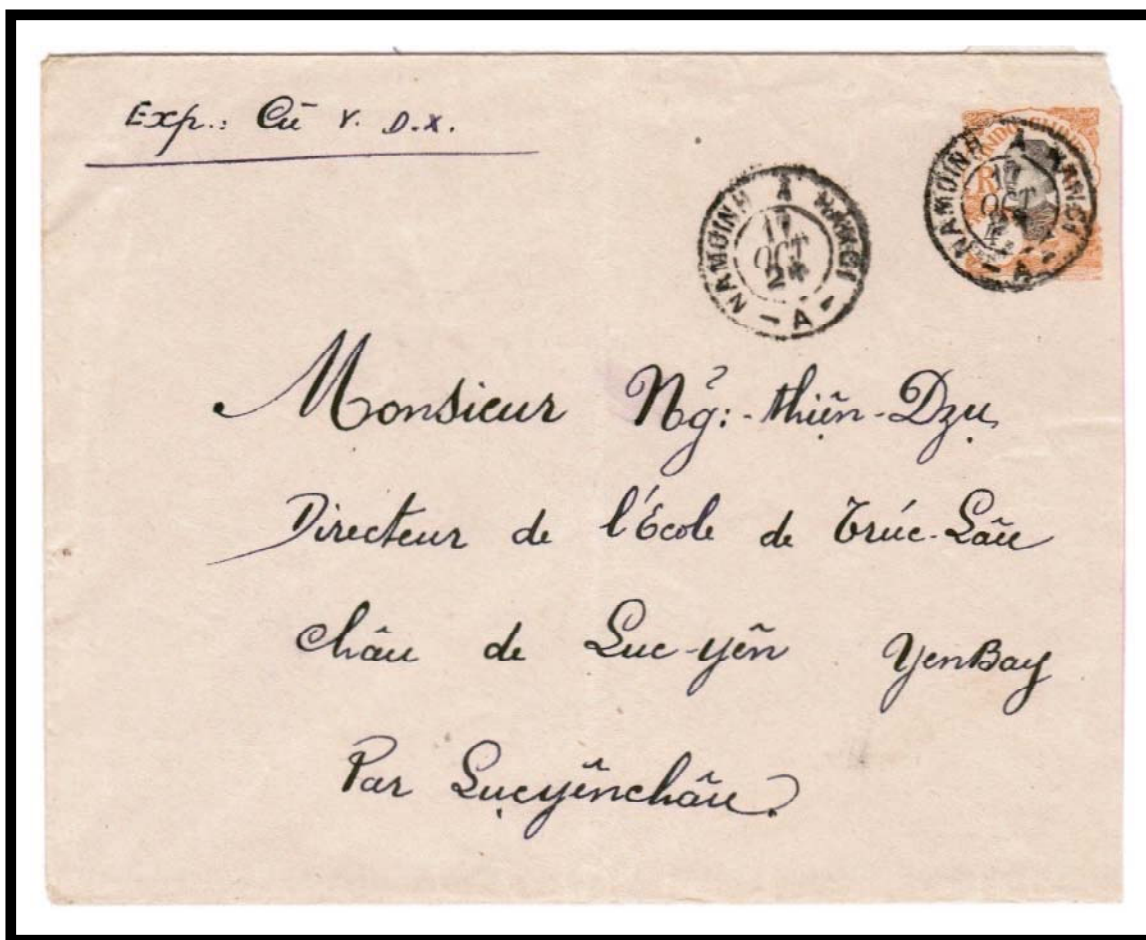 Exp.: Cū V. D.X.
NAMDINH A HANOI
17
OCT
24
- A -
INDO-CHINE
R
NAMDINH A HANOI
17
OCT
- A -
Monsieur Ng̉:-thiện-Dzụ
Directeur de l'École de Trúc-Lâu
châu de Luc-yên YenBay
Par Lụcyênchâu.